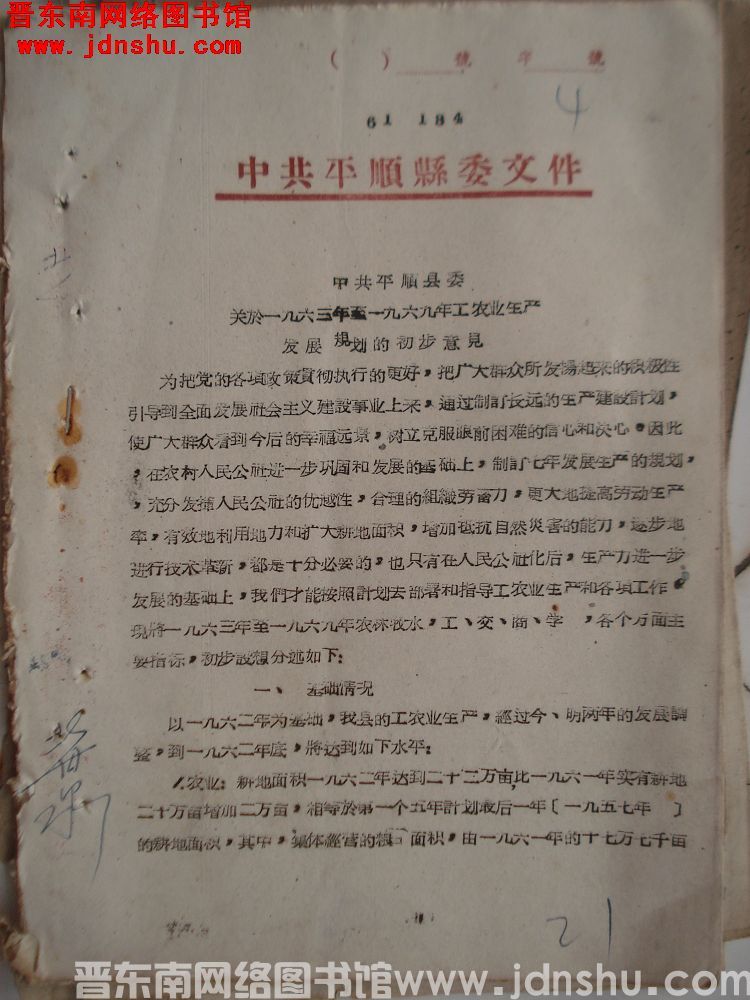 晋东南网络图书馆
www.jdnshu.com
（ ） 號 年 號
4
61 184
中共平順縣委文件
中共平順县委
关於一九六三年至一九六九年工农业生产
发展规划的初步意見
为把党的各項政策貫彻执行的更好，把广大群众所发揚起来的积极性
引导到全面发展社会主义建設事业上来，通过制訂长远的生产建設計划，
使广大群众看到今后的幸福远景，树立克服眼前困难的信心和决心。因此
，在农村人民公社进一步巩固和发展的基础上，制訂七年发展生产的規划，
，充分发揮人民公社的优越性，合理的組織劳畜力，更大地提高劳动生产
率，有效地利用地力和扩大耕地面积，增加抵抗自然災害的能力，逐步地
进行技术革新，都是十分必要的，也只有在人民公社化后，生产力进一步
发展的基础上，我們才能按照計划去部署和指导工农业生产和各項工作。
現將一九六三年至一九六九年农林牧水，工、交、商、学 ，各个方面主
要指标，初步設想分述如下：
一、 基础情况
以一九六二年为基础，我县的工农业生产，經过今、明两年的发展調
整，到一九六二年底，將达到如下水平：
农业：耕地面积一九六二年达到二十二万亩，比一九六一年实有耕地
二十万亩增加二万亩，相等於第一个五年計划最后一年〔一九五七年 〕
的耕地面积，其中，集体經营的粮田面积，由一九六一年的十七万七千亩
21
晋东南网络图书馆www.jdnshu.com